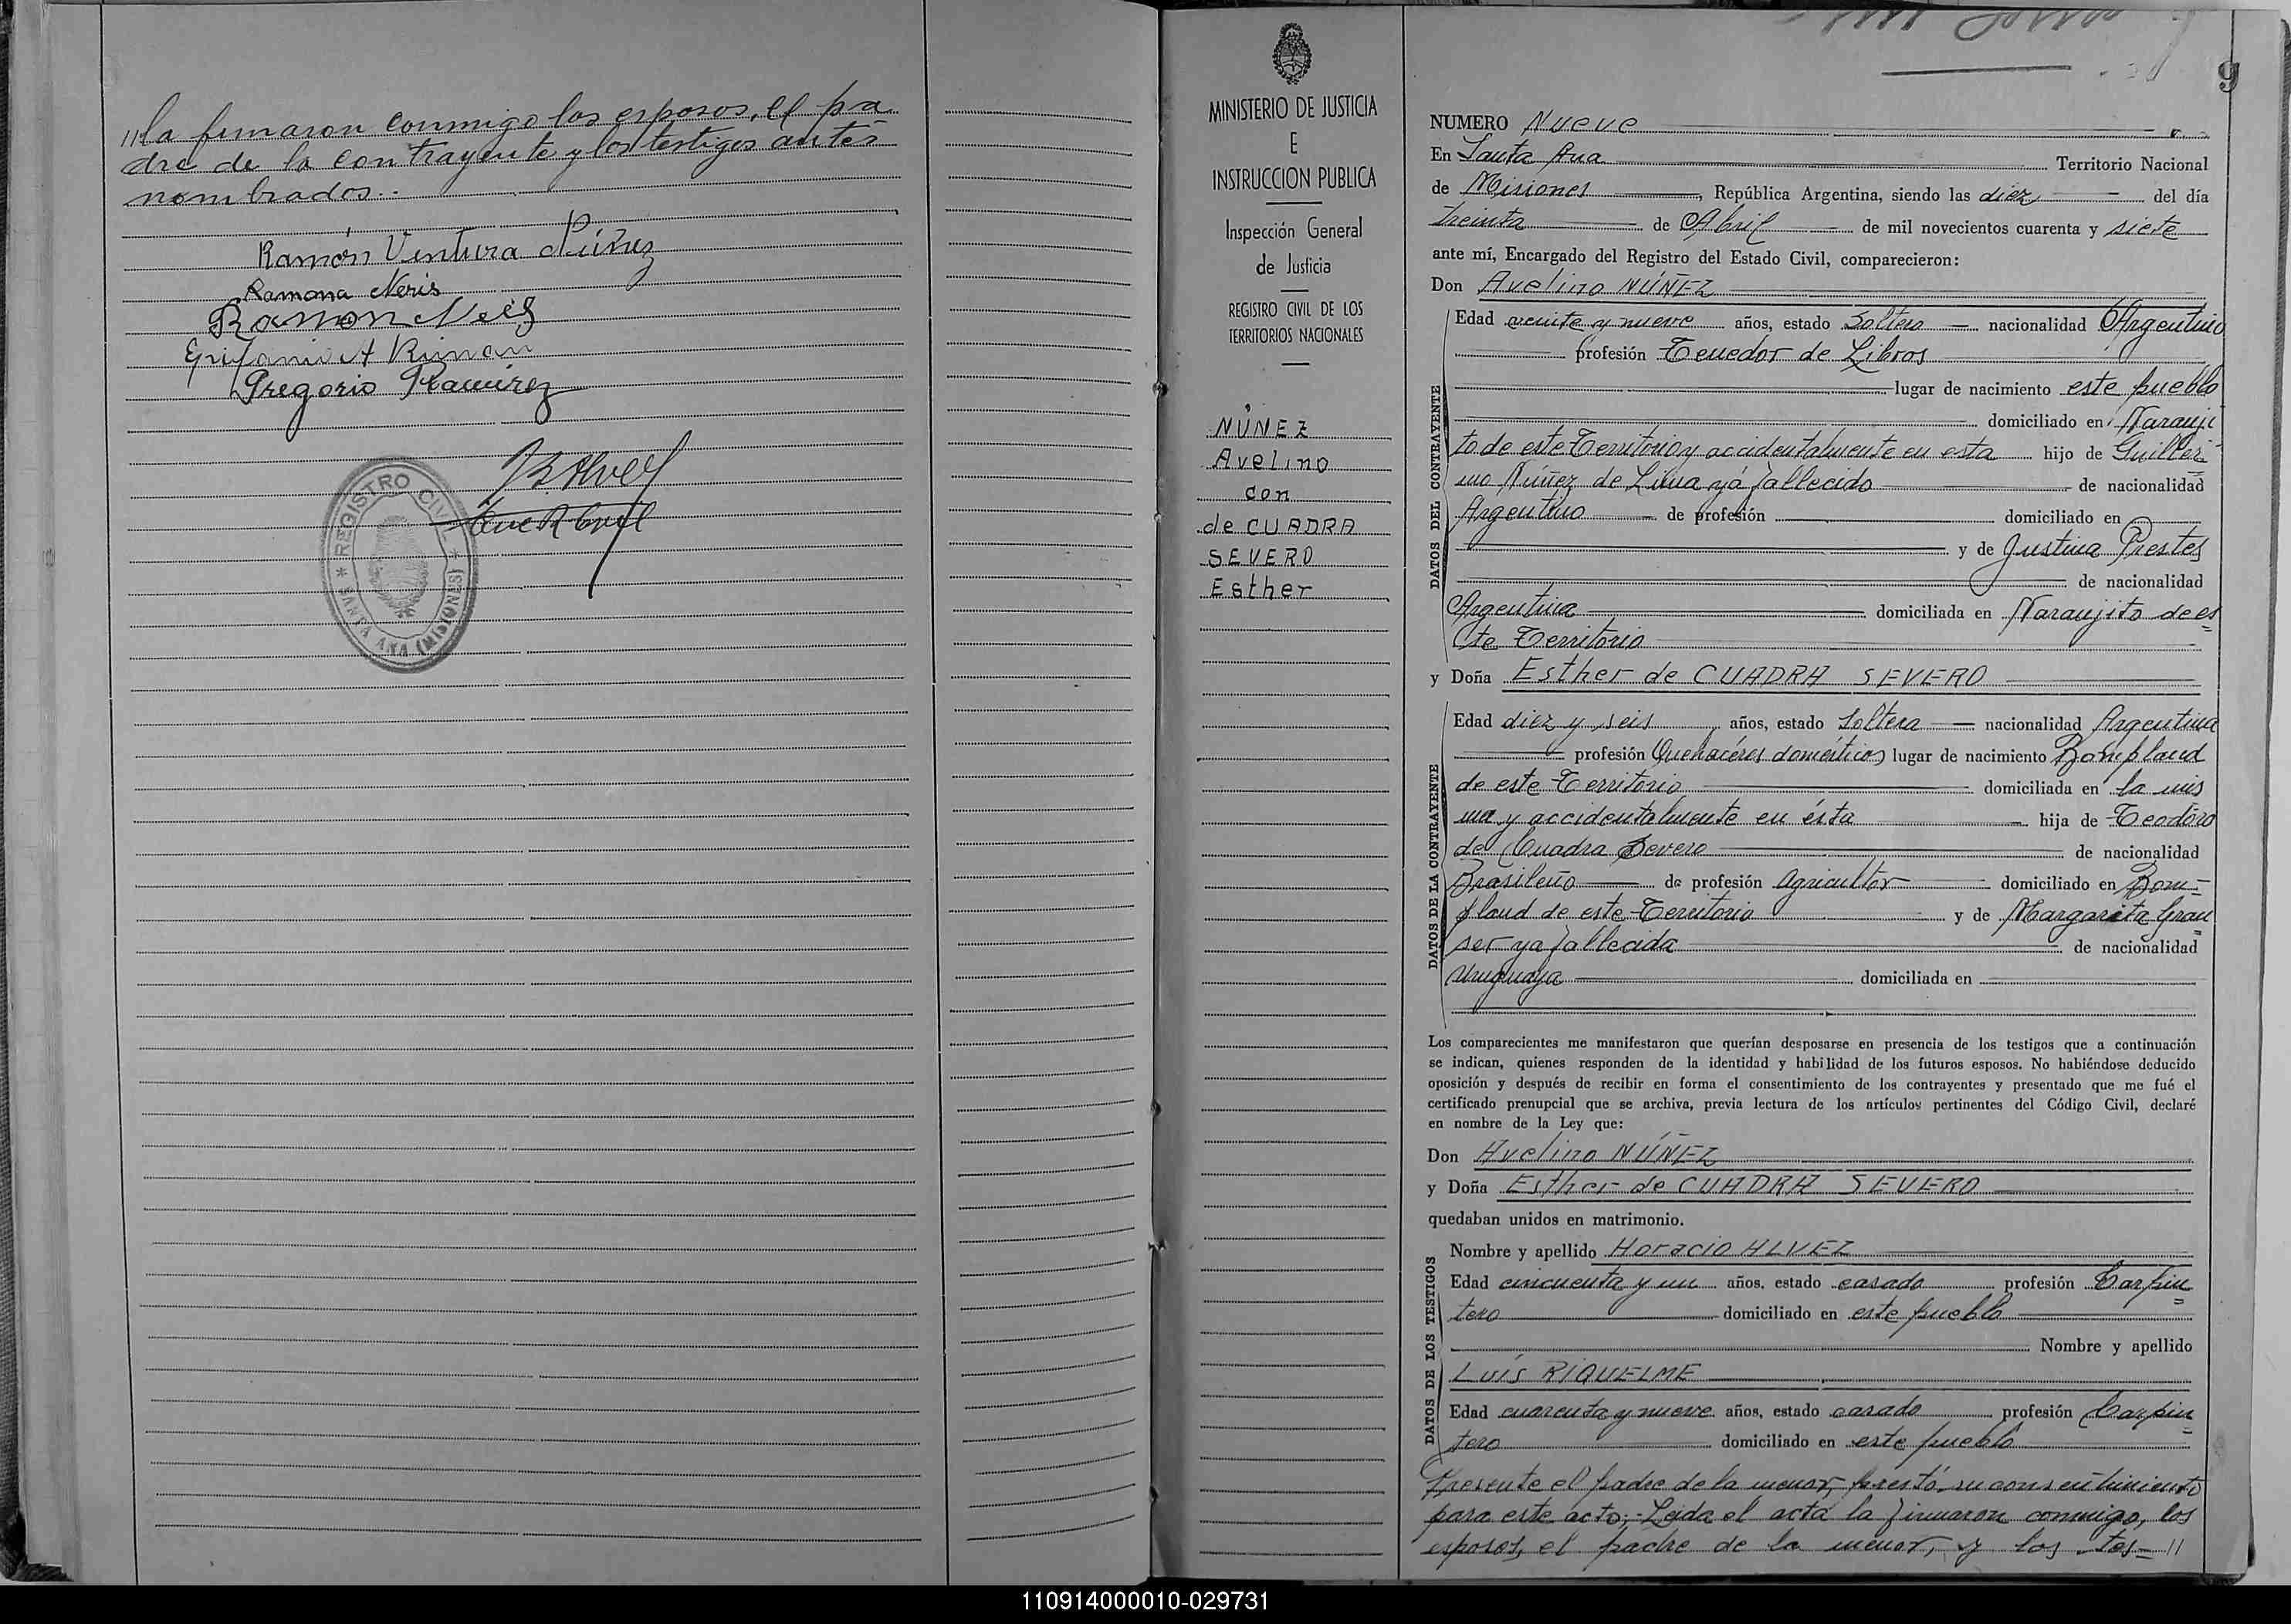 "la firmaron conmigo los esposos, el pa
dre de la contrayente y los testigos antes
nombrados.-
Ramón Ventura Núñez
Ramona Neris
Ramon Neis
Gregorio Ramirez
REGISTRO CIVIL
SANTA ANA (MISIONES)
MINISTERIO DE JUSTICIA
E
INSTRUCCION PUBLICA
Inspección General
de Justicia
REGISTRO CIVIL DE LOS
TERRITORIOS NACIONALES
NÚÑEZ
Avelino
con
de CUADRA
SEVERO
Esther
9
NUMERO Nueve
En Santa Ana Territorio Nacional
de Misiones, República Argentina, siendo las diez del día
treinta de Abril de mil novecientos cuarenta y siete
ante mí, Encargado del Registro del Estado Civil, comparecieron:
Don Avelino NÚÑEZ
DATOS DEL CONTRAYENTE
Edad veinte y nueve años, estado Soltero nacionalidad Argentino
profesión Tenedor de Libros
lugar de nacimiento este pueblo
domiciliado en Naranji
to de este Territorio y accidentalmente en esta hijo de Guiller=
mo Núñez de Lima yá fallecido de nacionalidad
Argentino de profesión domiciliado en
y de Justina Prestes
de nacionalidad
Argentina domiciliada en Naranjito de es
te Territorio
y Doña Esther de CUADRA SEVERO
DATOS DE LA CONTRAYENTE
Edad diez y seis años, estado Soltera nacionalidad Argentina
profesión Quehacéres domésticos lugar de nacimiento Bompland
de este Territorio domiciliada en la mis
ma y accidentalmente en ésta hija de Teodoro
de Cuadra Severo de nacionalidad
Brasileño de profesión Agricultor domiciliado en Bom=
pland de este Territorio y de Margarita Grau
ser ya fallecida de nacionalidad
Uruguaya domiciliada en
Los comparecientes me manifestaron que querían desposarse en presencia de los testigos que a continuación
se indican, quienes responden de la identidad y habilidad de los futuros esposos. No habiéndose deducido
oposición y después de recibir en forma el consentimiento de los contrayentes y presentado que me fué el
certificado prenupcial que se archiva, previa lectura de los artículos pertinentes del Código Civil, declaré
en nombre de la Ley que:
Don Avelino NÚÑEZ
y Doña Esther de CUADRA SEVERO
quedaban unidos en matrimonio.
DATOS DE LOS TESTIGOS
Nombre y apellido Horacio ALVEZ
Edad cincuenta y un años, estado casado profesión Carpin
tero domiciliado en este pueblo
Nombre y apellido
Luís RIQUELME
Edad cuarenta y nueve años, estado casado profesión Carpin
tero domiciliado en este pueblo
Presente el padre de la menor, prestó su consentimiento
para este acto;- Leida el acta la firmaron conmigo, los
esposos, el padre de la menor, y los tes="
110914000010-029731